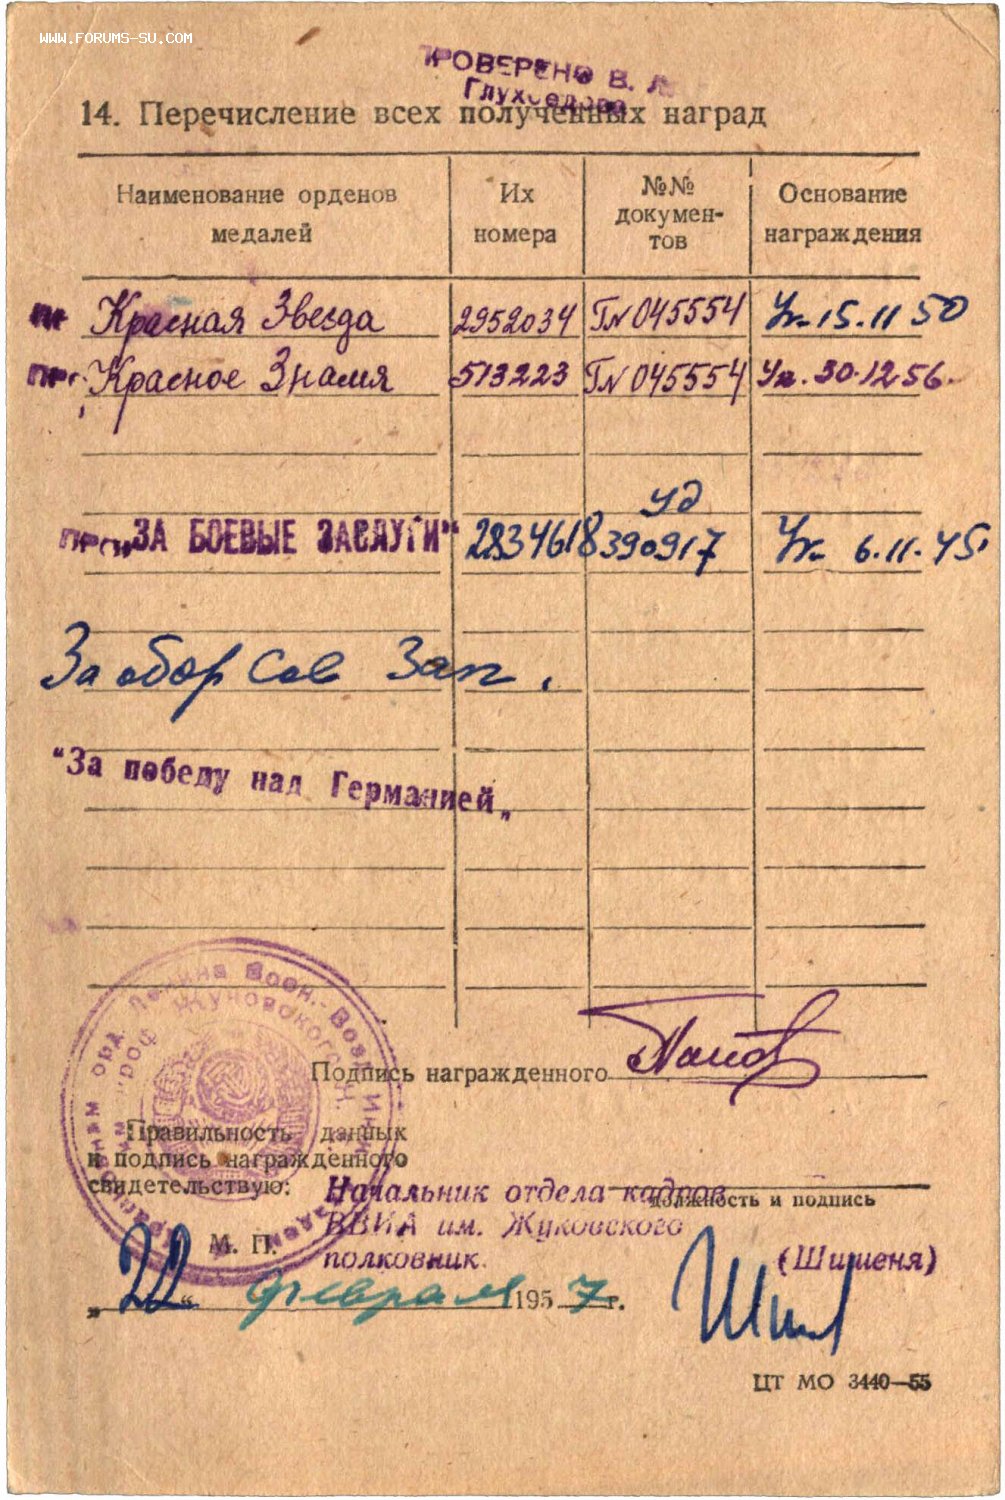 WWW.FORUMS-SU.COM
ПРОВЕРЕНО В. Л
14. Перечисление всех полученных наград
Наименование орденов медалей
Их номера
№№ докумен-тов
Основание награждения
Красная Звезда 2952034 ГN 045554 Ук. 15.11 50
Красное Знамя 513223 ГN 045554 Ук. 30.12 56.
уд
„ЗА БОЕВЫЕ ЗАСЛУГИ" 2834618 390917 Ук. 6.11.45
За обор Сов Зап.
"За победу над Германией„
Подпись награжденного
Правильность данных
и подпись награжденного
свидетельствую:
Начальник отдела кадров
должность и подпись
ВВИА им. Жуковского
полковник
(Шишеня)
М. П.
„22“ февраля 1957 г.
ЦТ МО 3440—55